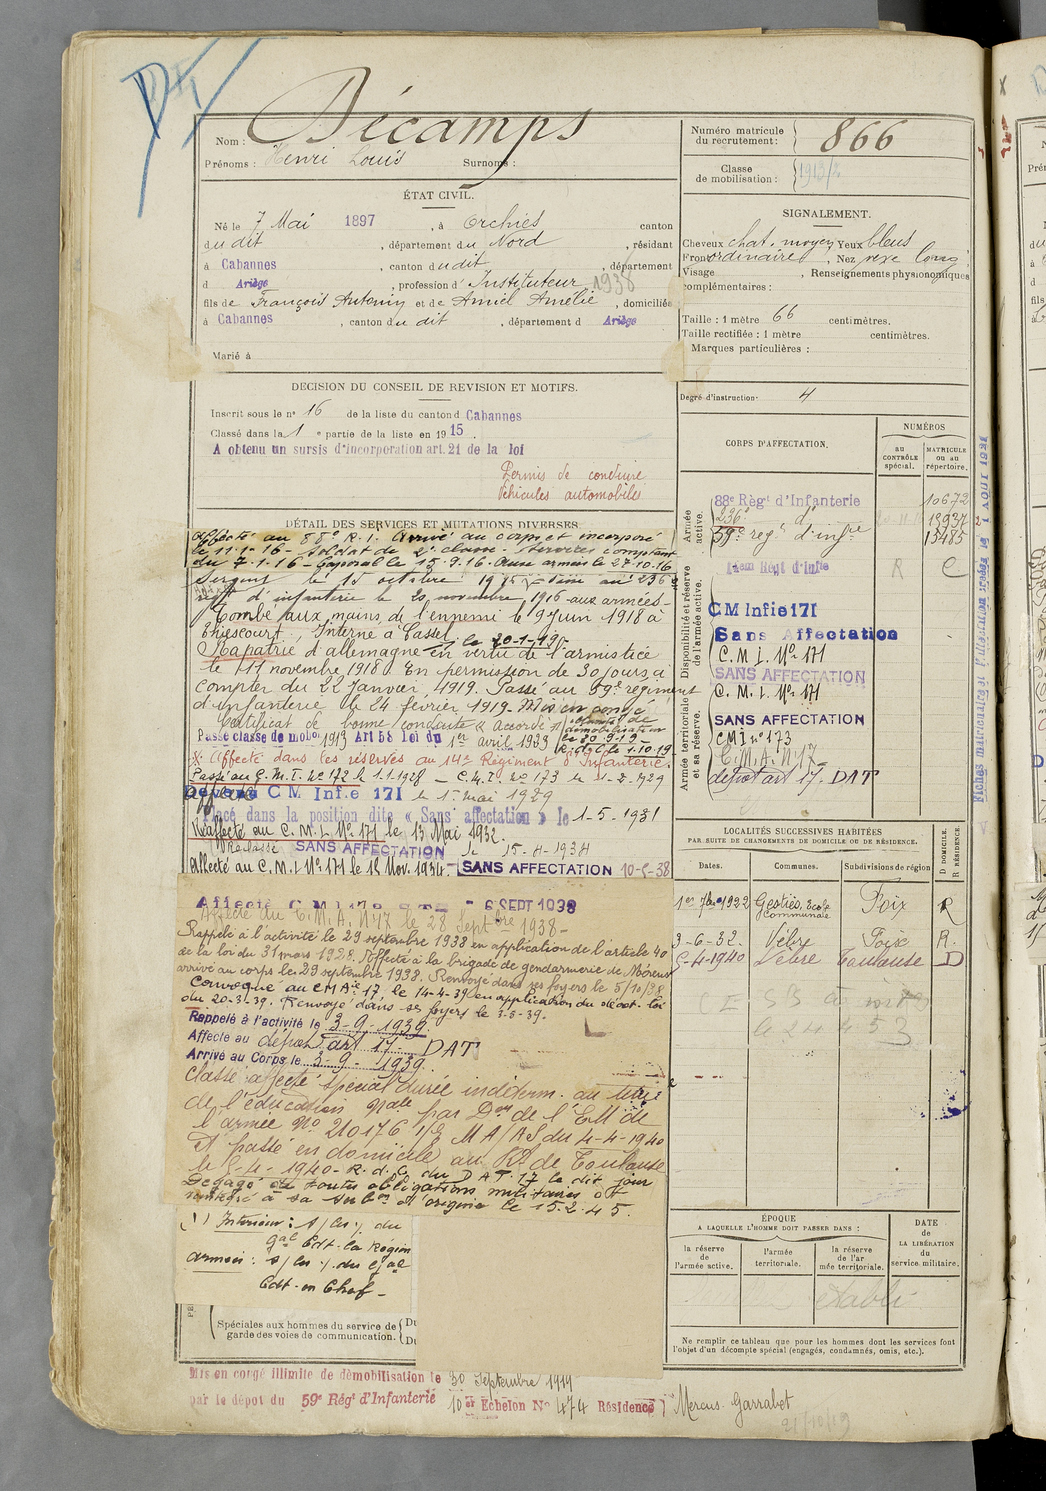 Nom : Décamps
Prénoms : Henri Louis Surnoms :
Numéro matricule du recrutement : 866
Classe de mobilisation : 1913/2
ÉTAT CIVIL.
Né le 7 Mai 1897, à Orchies canton
du dit, département du Nord, résidant
à Cabannes, canton du dit, département
d Ariège, profession d'Instituteur 1938
fils de François Antonin et de Amiel Amélie, domiciliés
à Cabannes, canton du dit, département d Ariège
Marié à
SIGNALEMENT.
Cheveux chat. moyen Yeux bleus
Front ordinaire, Nez long
Visage , Renseignements physionomiques
complémentaires :
Taille : 1 mètre 66 centimètres.
Taille rectifiée : 1 mètre centimètres.
Marques particulières :
Degré d'instruction 4
DECISION DU CONSEIL DE REVISION ET MOTIFS.
Inscrit sous le n° 16 de la liste du canton d Cabannes
Classé dans la 1e partie de la liste en 1915.
A obtenu un sursis d'incorporation art. 21 de la loi
Permis de conduire
véhicules automobiles
DÉTAIL DES SERVICES ET MUTATIONS DIVERSES
affecté au 88e R.I. Arrivé au corps et incorporé
le 11-1-16 - Soldat de 2e classe - Services comptant
du 7-1-16 - Caporal le 15-9-16. Aux armées le 27-10-16
Sergent le 15 octobre
régt d'infanterie le 20 novembre 1916 - aux armées -
Tombé aux mains de l'ennemi le 9 Juin 1918 à
Thiescourt, Interné à Cassel,
Rapatrié d'allemagne en vertu de l'armistice
le 11 novembre 1918. En permission de 30 jours à
compter du 22 Janvier 1919. Passé au 59e régiment
d'infanterie le 24 février 1919. Mis en congé
Certificat de bonne conduite « Accordé »
illimité de
démobilisation
le 30-9-19
R.d.C. le 1.10.19
Passé classe de mobon 1913 Art 58 Loi du 1er avril 1933
Affecté dans les réserves au 14e Régiment d'Infanterie.
Passé au C.M.I. No 172 le 1.1.1928 - C.M.I. no 173 le 1-2-1929
Devenu C M Infie 171 le 1er mai 1929
Placé dans la position dite « Sans affectation » le 1-5-1931
Réaffecté au C.M.I. No 171 le 13 Mai 1932.
Reclassé SANS AFFECTATION le 15-8-1934
Affecté au C.M.I No 171 le 15 Nov. 1934. SANS AFFECTATION 10-5-38
6 SEPT 1938
Affecté au C.M.A. N° 17 le 28 Septbre 1938 -
Rappelé à l'activité le 29 septembre 1938 en application de l'article 40
de la loi du 31 mars 1928. Affecté à la brigade de gendarmerie de
arrivé au corps le 29 septembre 1938. Renvoyé dans ses foyers le 5/10/38
Convoqué au CM Aie 17, le 14-4-39 en application du décret-loi
du 20-3-39. Renvoyé dans ses foyers le 3-5-39.
Rappelé à l'activité le 3-9-1939
Affecté au dépôt art 17 - DAT
Arrivé au Corps le 3-9-1939
Classé affecté spécial durée indéterm. au titre
de l'éducation Nale par Don de l'EM de
l'armée No 21017 MA/AS du 4-4-1940
et passé en domicile au Rt de Toulouse
le 5-4-1940 - R.d.C. du DAT. 17 le dit jour
Dégagé de toutes obligations militaires et
à sa d'origine le 15.2.45.
(1) Intérieur : du
gal Cdt. la Région
Armées : du Gal
Cdt. en Chef -
Spéciales aux hommes du service de
garde des voies de communication.
Mis en congé illimité de démobilisation le 30 Septembre 1919
par le dépôt du 59e Régt d'Infanterie 10er Echelon No 474 Résidence Mercus-Garrabet
21/10/19
CORPS D'AFFECTATION.
NUMÉROS
au CONTRÔLE spécial.
MATRICULE ou au répertoire.
Armée active.
88e Régt d'Infanterie 10672
236e d° 13937
59e régt d'infie 13485
Disponibilité et réserve de l'armée active.
14em Régt d'Infie R C
CM Infie 171
Sans Affectation
C.M.I. No 171
SANS AFFECTATION
C.M.I. No 171
Armée territoriale et sa réserve.
SANS AFFECTATION
CMI no 173
C.M.A. N° 17
dépôt art 17. DAT
LOCALITÉS SUCCESSIVES HABITÉES
PAR SUITE DE CHANGEMENTS DE DOMICILE OU DE RÉSIDENCE.
Dates. Communes. Subdivisions de région D DOMICILE. R RÉSIDENCE.
1er 7bre 1922 Gestiès, école communale Foix R
3-6-32. Vèbre Foix R.
5-4-1940 Vèbre Toulouse D
ÉPOQUE
A LAQUELLE L'HOMME DOIT PASSER DANS :
la réserve de l'armée active.
l'armée territoriale.
la réserve de l'armée territoriale.
DATE de LA LIBÉRATION du service militaire.
Ne remplir ce tableau que pour les hommes dont les services font
l'objet d'un décompte spécial (engagés, condamnés, omis, etc.).